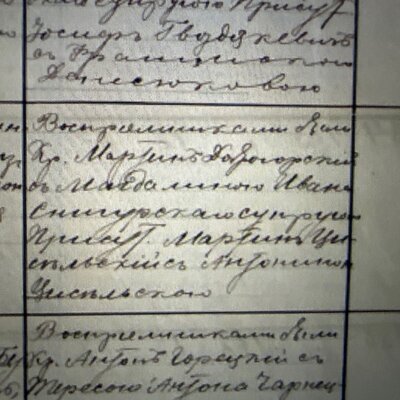 супругою Присут.
Іосифъ Гвудзкевичъ
съ Францискою
Денисюковою
Воспріемниками были
Кр. Мартинъ Загорскій
съ Магдалиною Ивана
Снигурскаго супругою
Присут. Мартинъ Ци-
сѣльскій съ Антониною
Цисѣльскою
Воспріемниками были
Кр. Антонъ Горецкій съ
Тересою Антона Чарнец-